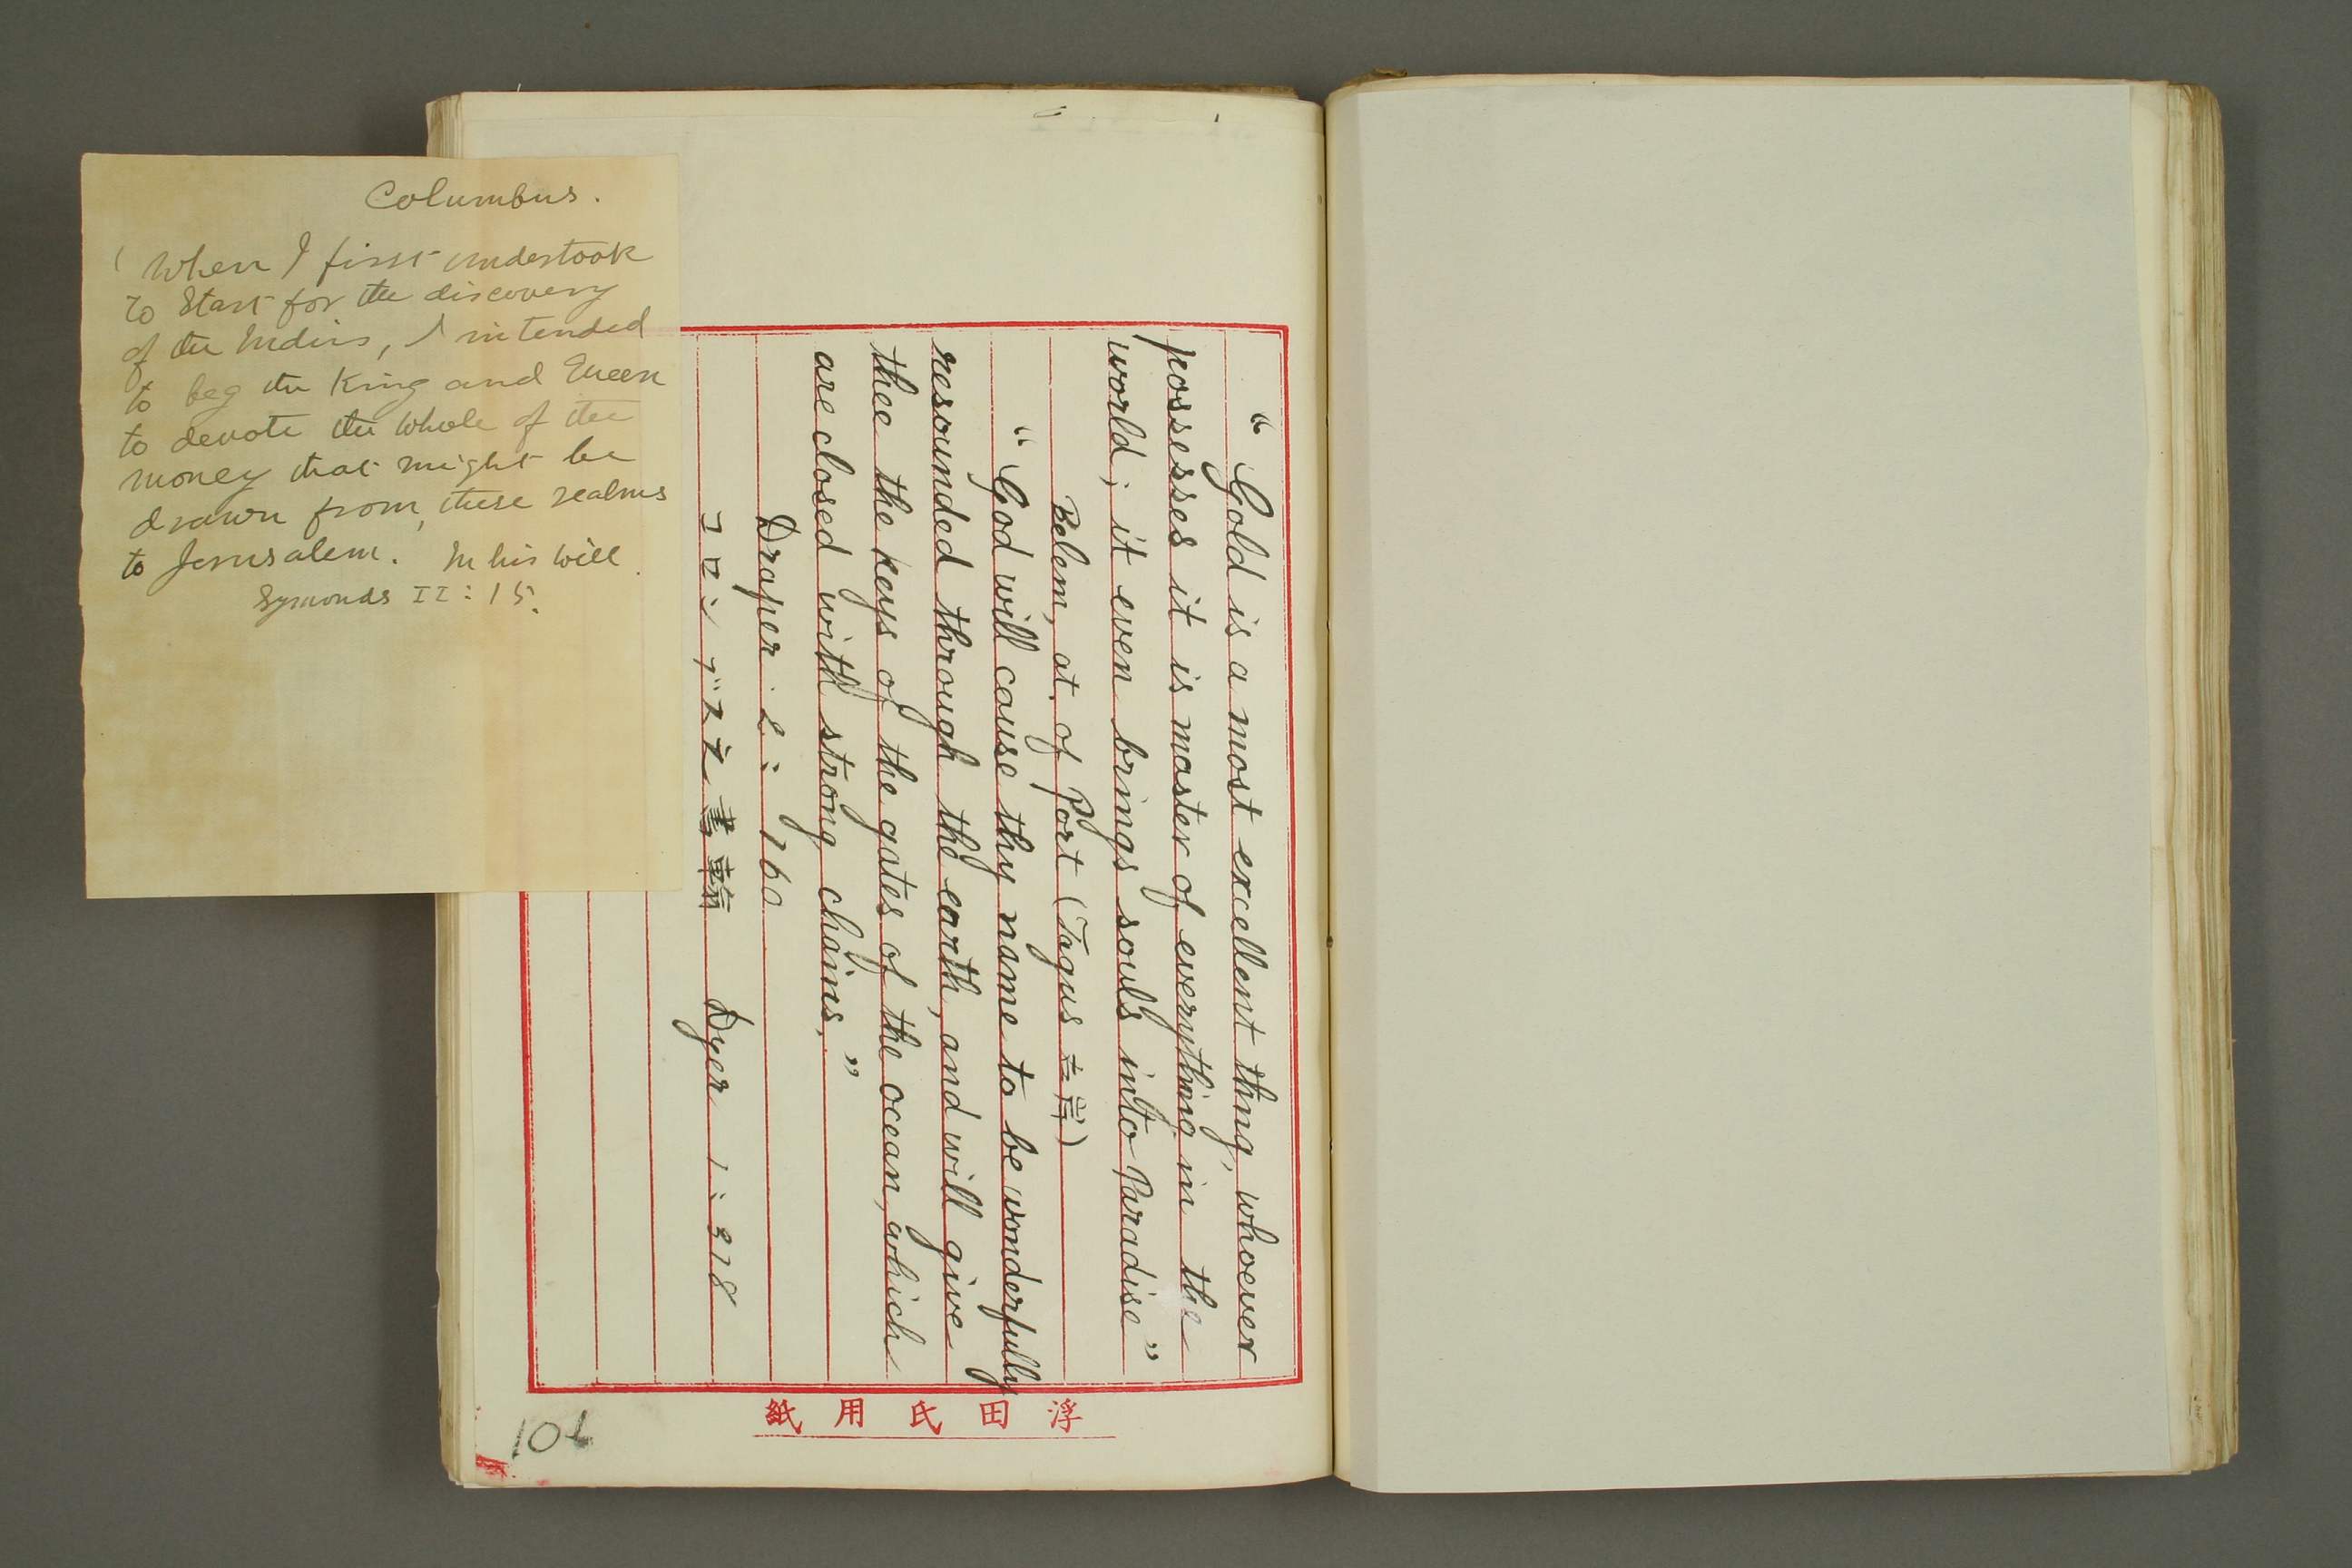 Columbus.
When I first undertook
to start for the discovery
of the Indies, I intended
to beg the King and Queen
to devote the whole of the
money that might be
drawn from these realms
to Jerusalem. In his will.
Symonds II: 15.
" Gold is a most excellent thing, whoever
possesses it is master of everything in the
world; it even brings souls into Paradise"
Belem, at of Port (Tagus
" God will cause thy name to be wonderfully
resounded through the earth, and will give
thee the keys of the gates of the ocean, which
are closed with strong chains."
Draper 2: 160
コロンブス之書翰 Dyer 1: 378
浮田氏用紙